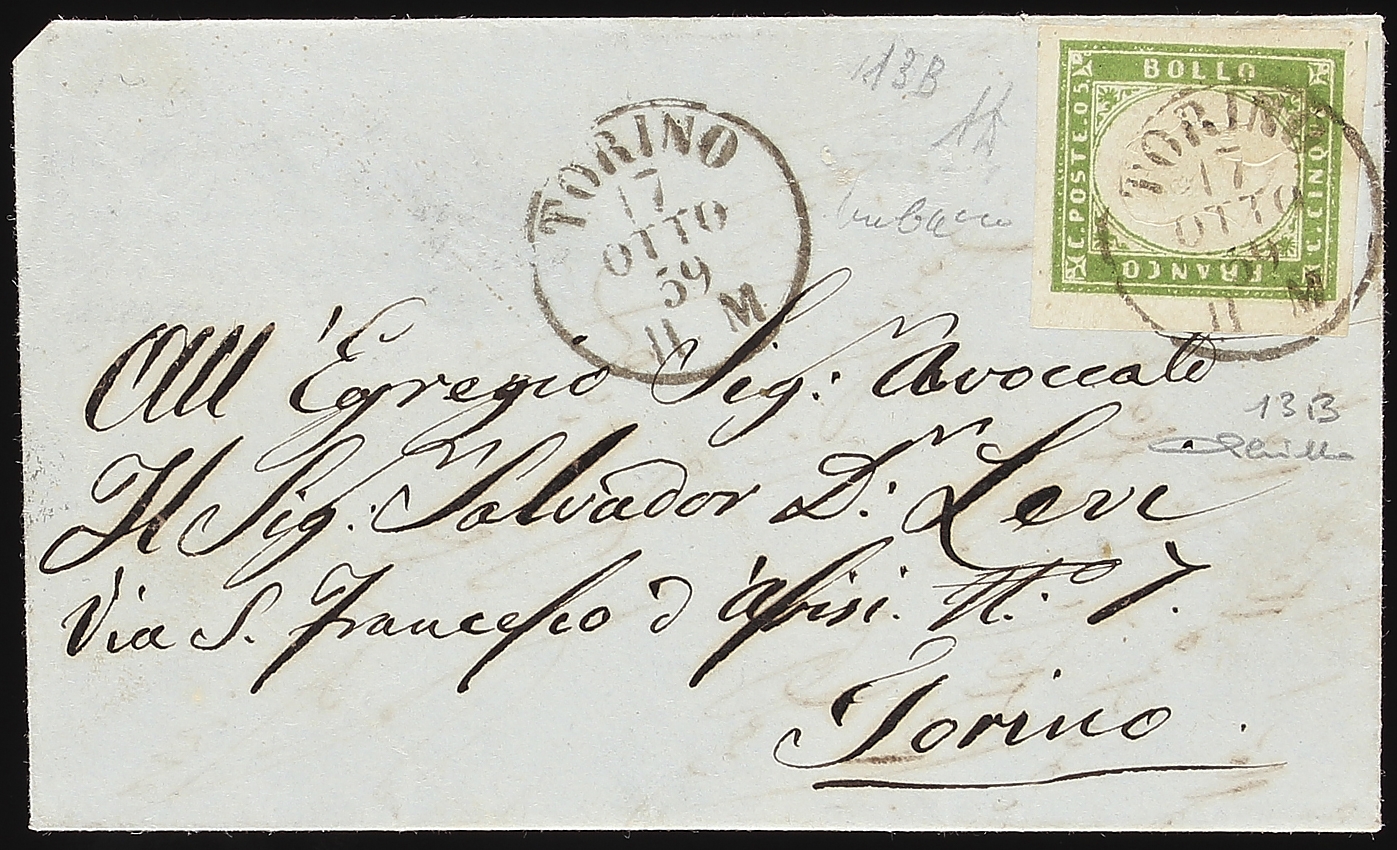 13B
BOLLO
C. POSTE. 05
C. CINQUE
FRANCO
TORINO
17
OTTO
59
11 M
TORINO
17
OTTO
59
11 M
All' Egregio Sig: Avvocato
Il Sig: Salvador D: Levi
Via S. Francesco d'Assisi. N.º 7.
Torino.
13 B